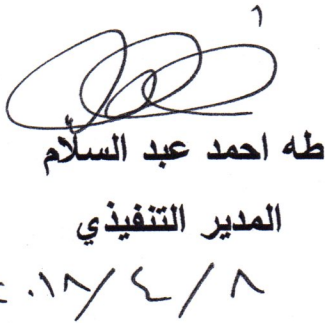 طه احمد عبد السلّام
المدير التنفيذي
٢٠١٨/٤/٨